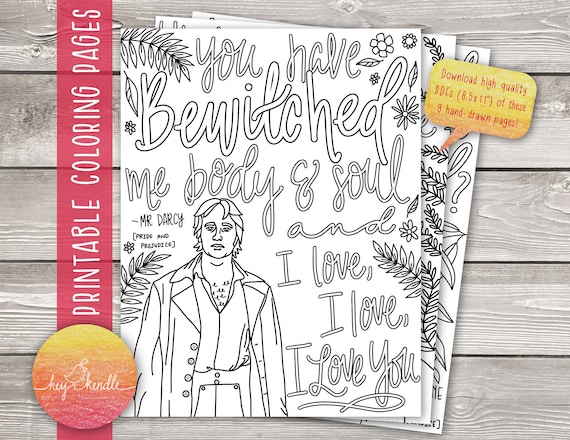 PRINTABLE COLORING PAGES
you have
Bewitched
me body & soul
and
I love,
I love,
I Love You
-MR DARCY
[PRIDE AND
PREJUDICE]
Download high quality
PDFs (8.5x11") of these
9 hand-drawn pages!
?
ME
hey kendle